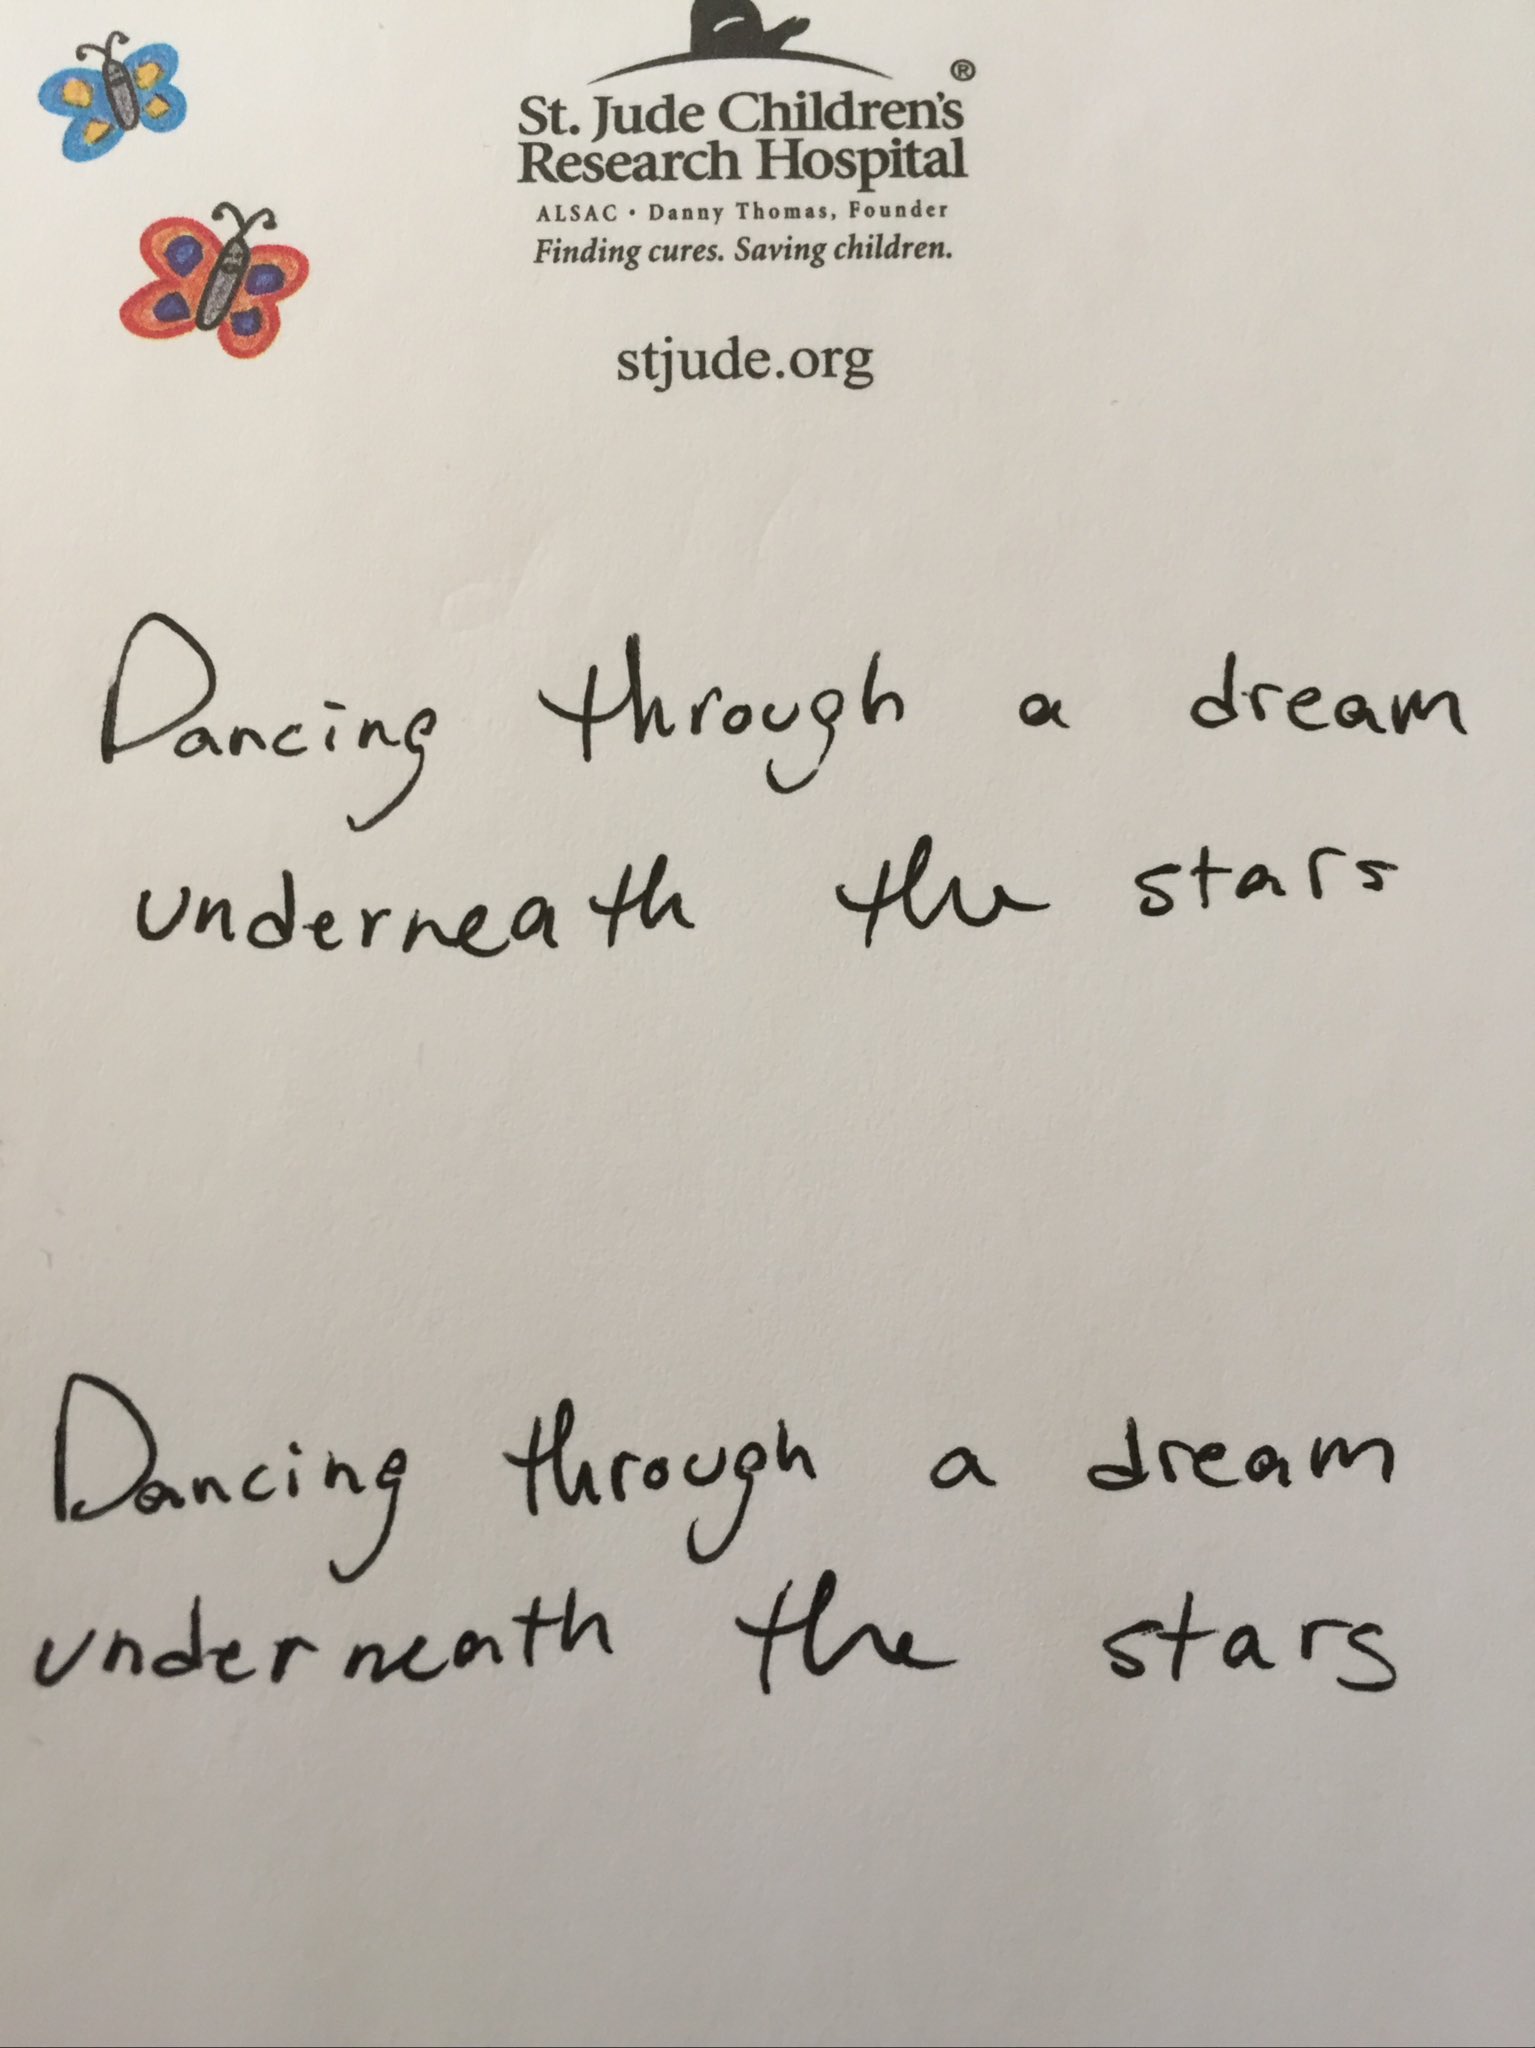 St. Jude Children's
Research Hospital
®
ALSAC • Danny Thomas, Founder
Finding cures. Saving children.
stjude.org
Dancing through a dream
underneath the stars
Dancing through a dream
underneath the stars